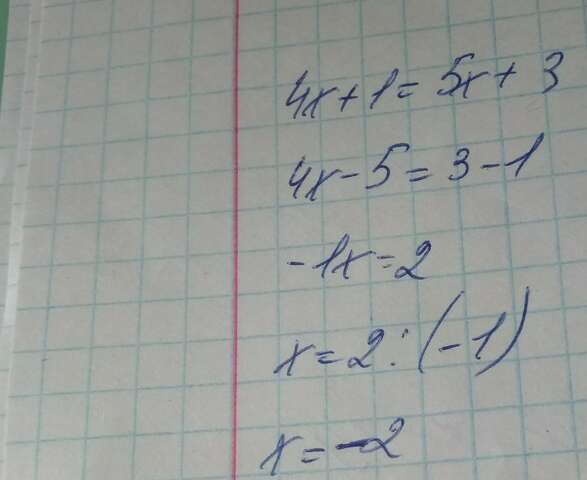 4x+1=5x+3
4x-5=3-1
-1x=2
x=2:(-1)
x=-2